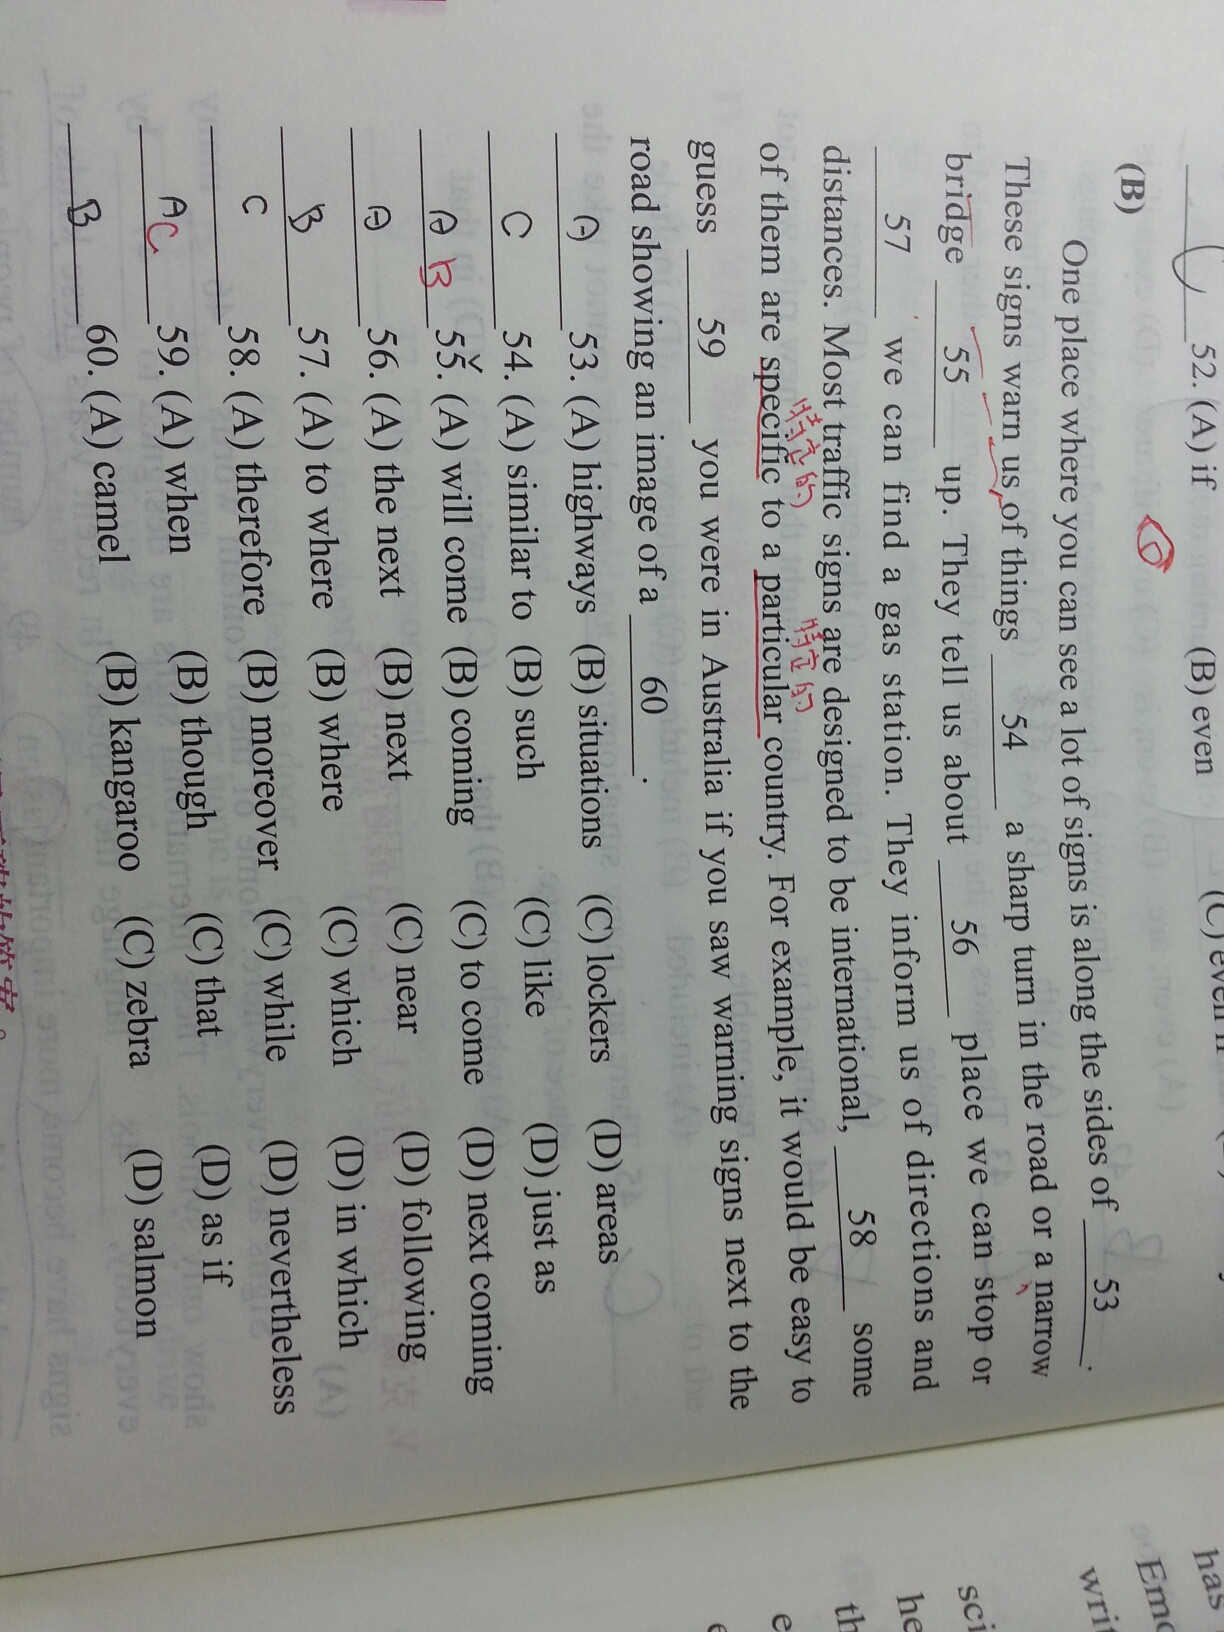 52. (A) if (B) even
(B)
One place where you can see a lot of signs is along the sides of 53 .
These signs warn us of things 54 a sharp turn in the road or a narrow
bridge 55 up. They tell us about 56 place we can stop or
57 we can find a gas station. They inform us of directions and
distances. Most traffic signs are designed to be international, 58 some
of them are specific to a particular country. For example, it would be easy to
guess 59 you were in Australia if you saw warning signs next to the
road showing an image of a 60 .
A 53. (A) highways (B) situations (C) lockers (D) areas
C 54. (A) similar to (B) such (C) like (D) just as
A B 55. (A) will come (B) coming (C) to come (D) next coming
A 56. (A) the next (B) next (C) near (D) following
B 57. (A) to where (B) where (C) which (D) in which
C 58. (A) therefore (B) moreover (C) while (D) nevertheless
A C 59. (A) when (B) though (C) that (D) as if
B 60. (A) camel (B) kangaroo (C) zebra (D) salmon
has
Emo
writ
sci
he
th
e